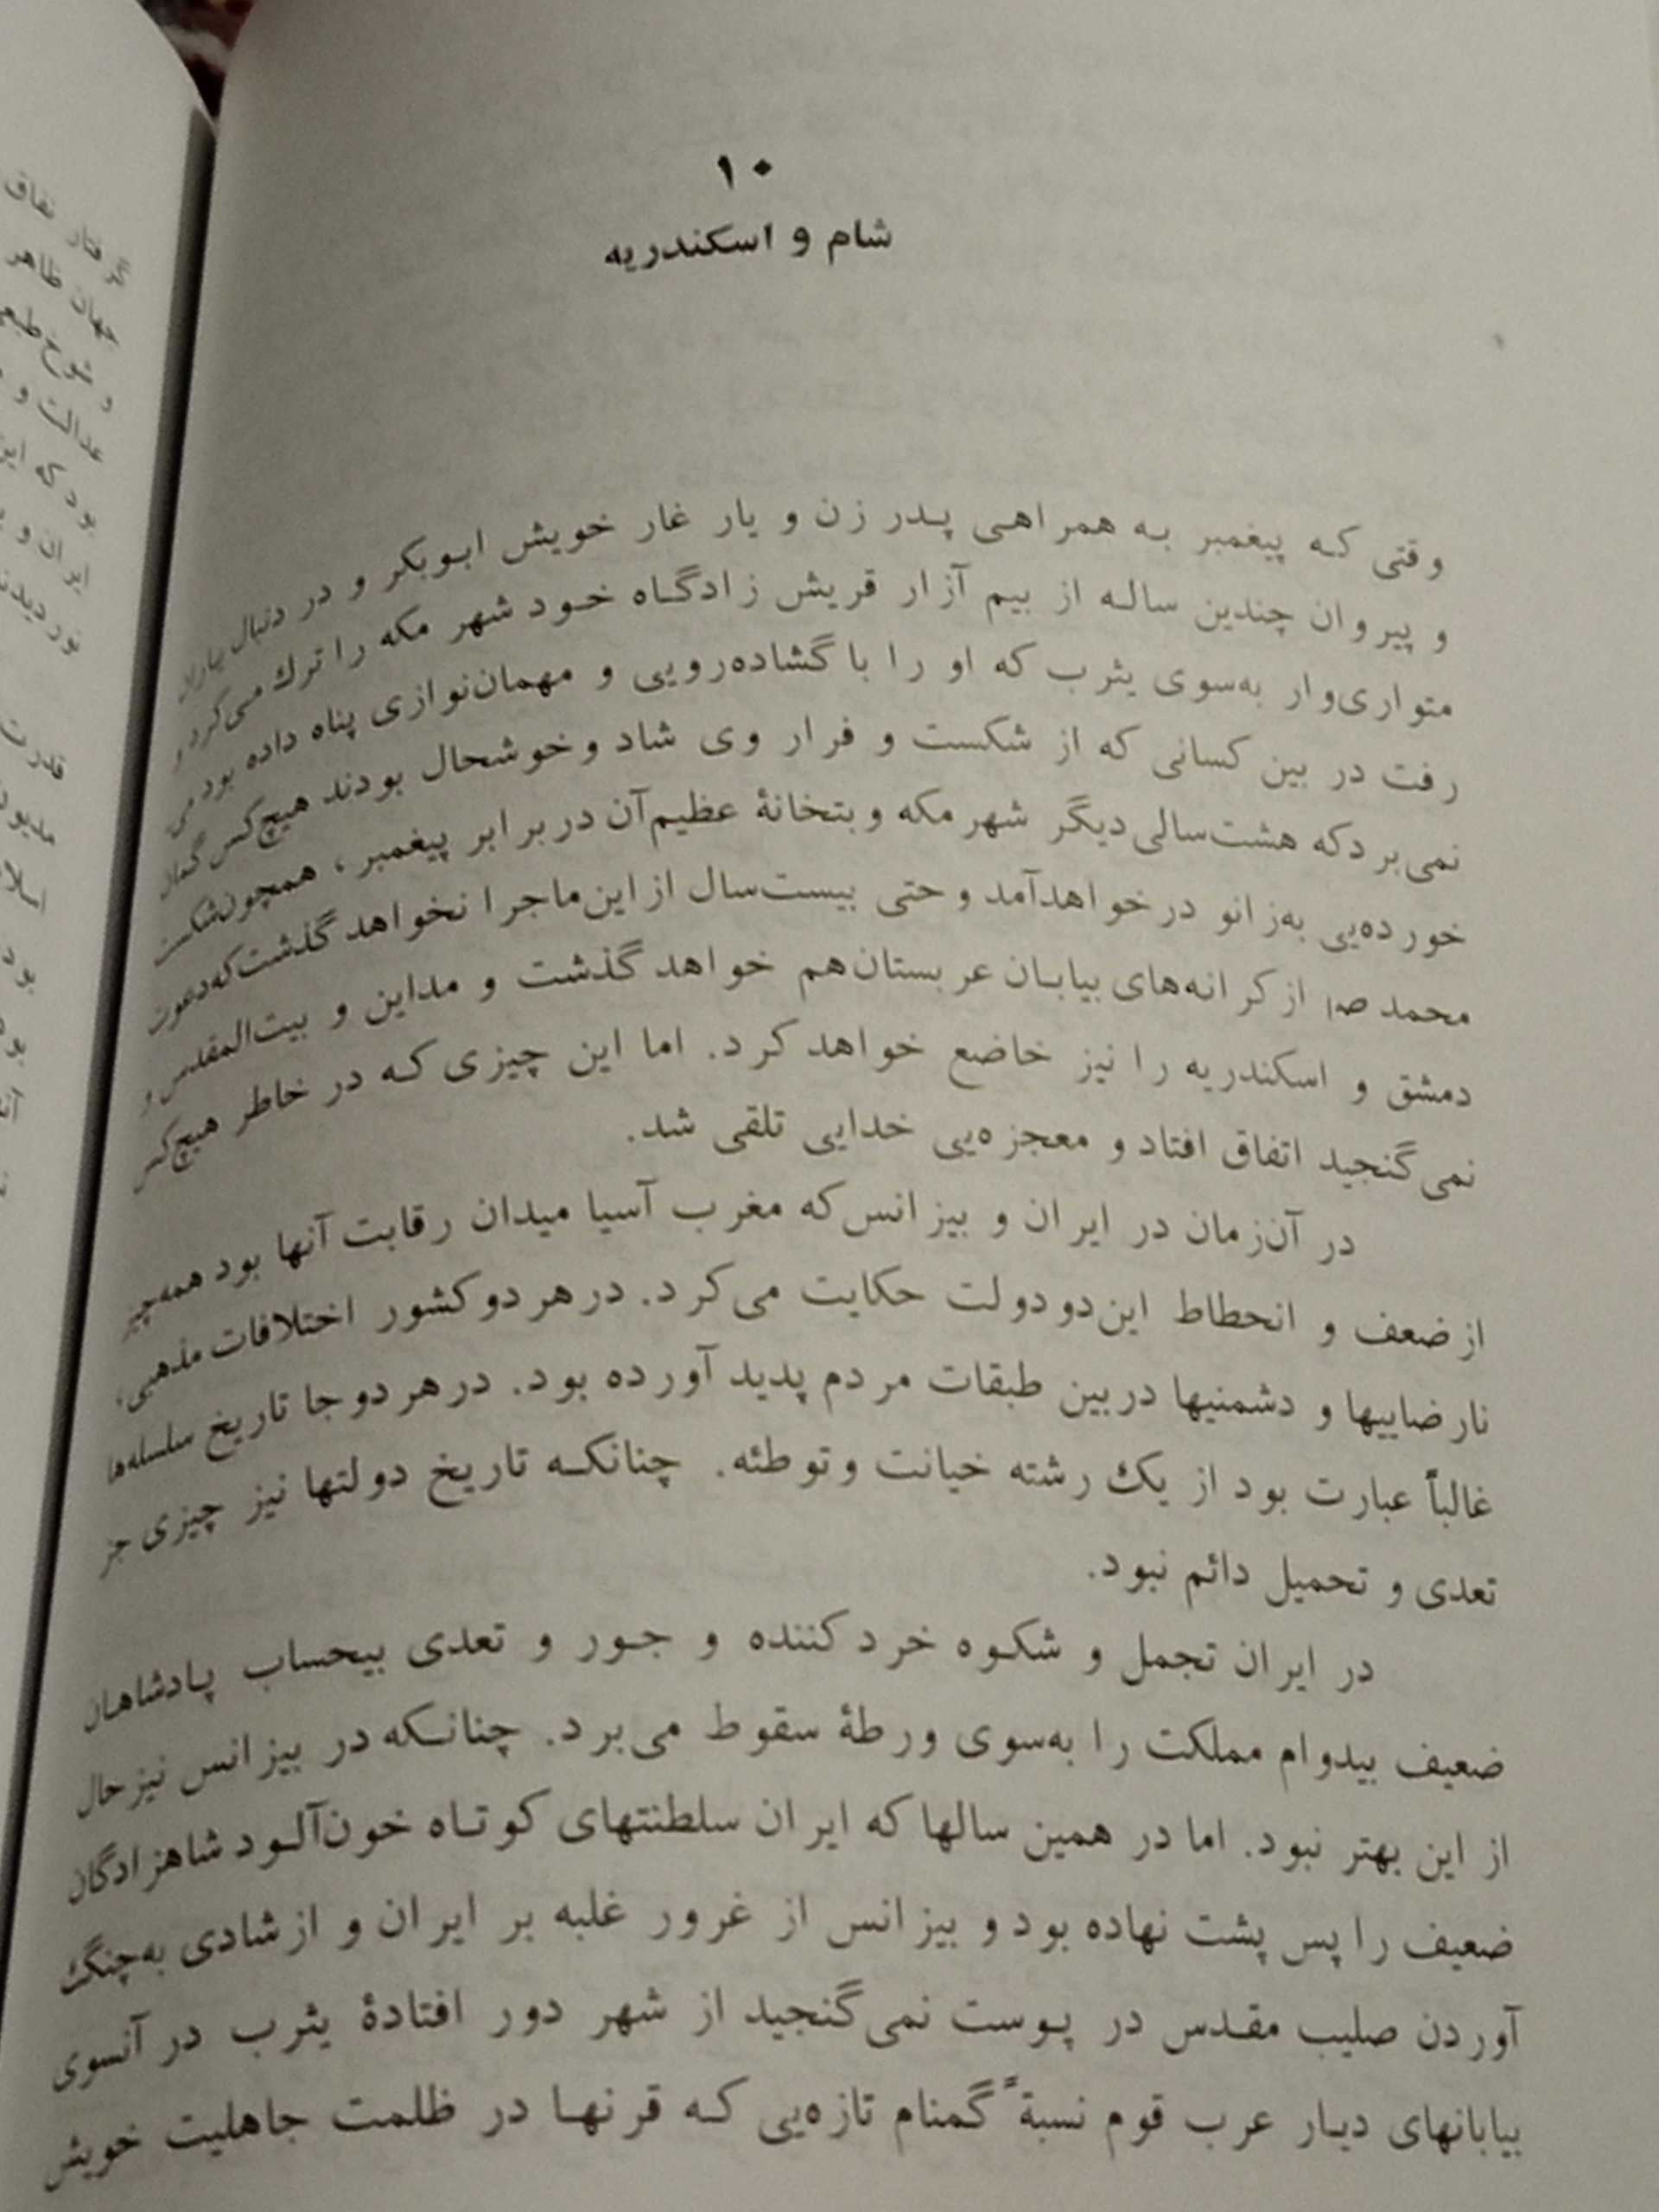 ۱۰
شام و اسکندریه
وقتی که پیغمبر به همراهی پدر زن و یار غار خویش ابوبکر و در دنبال یاران
و پیروان چندین ساله از بیم آزار قریش زادگاه خود شهر مکه را ترك می‌کرد و
متواری‌وار به‌سوی یثرب که او را با گشاده‌رویی و مهمان‌نوازی پناه داده بود می
رفت در بین کسانی که از شکست و فرار وی شاد و خوشحال بودند هیچ‌کس گمان
نمی‌برد که هشت‌سالی دیگر شهر مکه و بتخانهٔ عظیم‌آن در برابر پیغمبر، همچون‌شکست
خورده‌یی به‌زانو درخواهدآمد و حتی بیست‌سال ازاین‌ماجرا نخواهد گذشت‌که‌دعوت
محمد ص از کرانه‌های بیابان عربستان‌هم خواهد گذشت و مداین و بیت‌المقدس و
دمشق و اسکندریه را نیز خاضع خواهد کرد. اما این چیزی که در خاطر هیچ‌کس
نمی‌گنجید اتفاق افتاد و معجزه‌یی خدایی تلقی شد.
در آن‌زمان در ایران و بیزانس‌که مغرب آسیا میدان رقابت آنها بود همه‌چیز
از ضعف و انحطاط این‌دو دولت حکایت می‌کرد. در هر دو کشور اختلافات مذهبی،
نارضاییها و دشمنیها دربین طبقات مردم پدید آورده بود. در هر دو جا تاریخ سلسله‌ها
غالباً عبارت بود از یك رشته خیانت و توطئه. چنانکه تاریخ دولتها نیز چیزی جز
تعدی و تحمیل دائم نبود.
در ایران تجمل و شکوه خرد کننده و جور و تعدی بیحساب پادشاهان
ضعیف بیدوام مملکت را به‌سوی ورطهٔ سقوط می‌برد. چنانکه در بیزانس نیز حال
از این بهتر نبود. اما در همین سالها که ایران سلطنتهای کوتاه خون‌آلود شاهزادگان
ضعیف را پس پشت نهاده بود و بیزانس از غرور غلبه بر ایران و از شادی به‌چنگ
آوردن صلیب مقدس در پوست نمی‌گنجید از شهر دور افتادهٔ یثرب در آنسوی
بیابانهای دیار عرب قوم نسبةً گمنام تازه‌یی که قرنها در ظلمت جاهلیت خویش
گرفتار نفاق
جهان ظاهر
و شوخ‌طبعی
عدالت و
بود که این
ایران و
نوردیدند
قدرت
مدیون
اسلا
بود